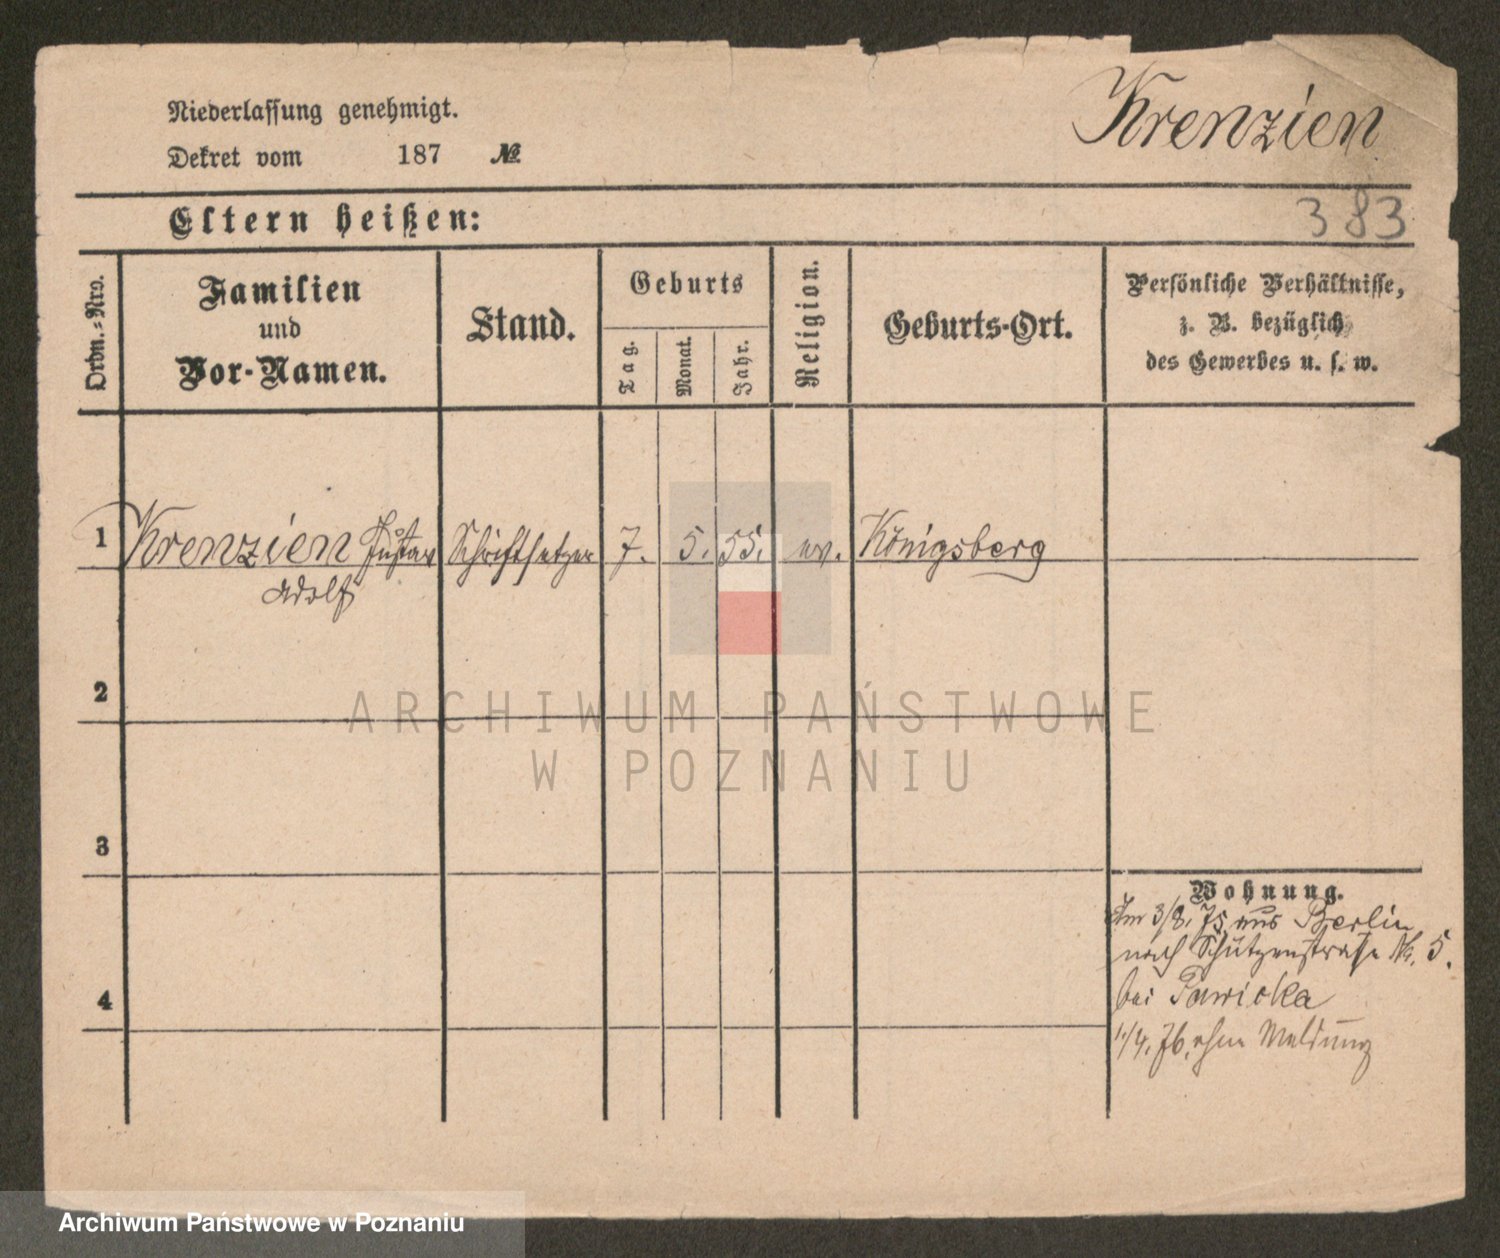 Niederlassung genehmigt.
Krenzien
Dekret vom 187 №
Eltern heißen:
383
Ordn.=Nro.
Familien
und
Vor-Namen.
Stand.
Geburts
Tag.
Monat.
Jahr.
Religion.
Geburts-Ort.
Persönliche Verhältnisse,
z. B. bezüglich
des Gewerbes u. s. w.
1 Krenzien Gustav Schriftsetzer 7. 5. 55. ev. Königsberg
Adolf
2
3
4
Wohnung.
Am 3/8. 75 aus Berlin
nach Schützenstraße No. 5.
bei Pawicka
1/4. 76. ohne Meldung
ARCHIWUM PAŃSTWOWE
W POZNANIU
Archiwum Państwowe w Poznaniu